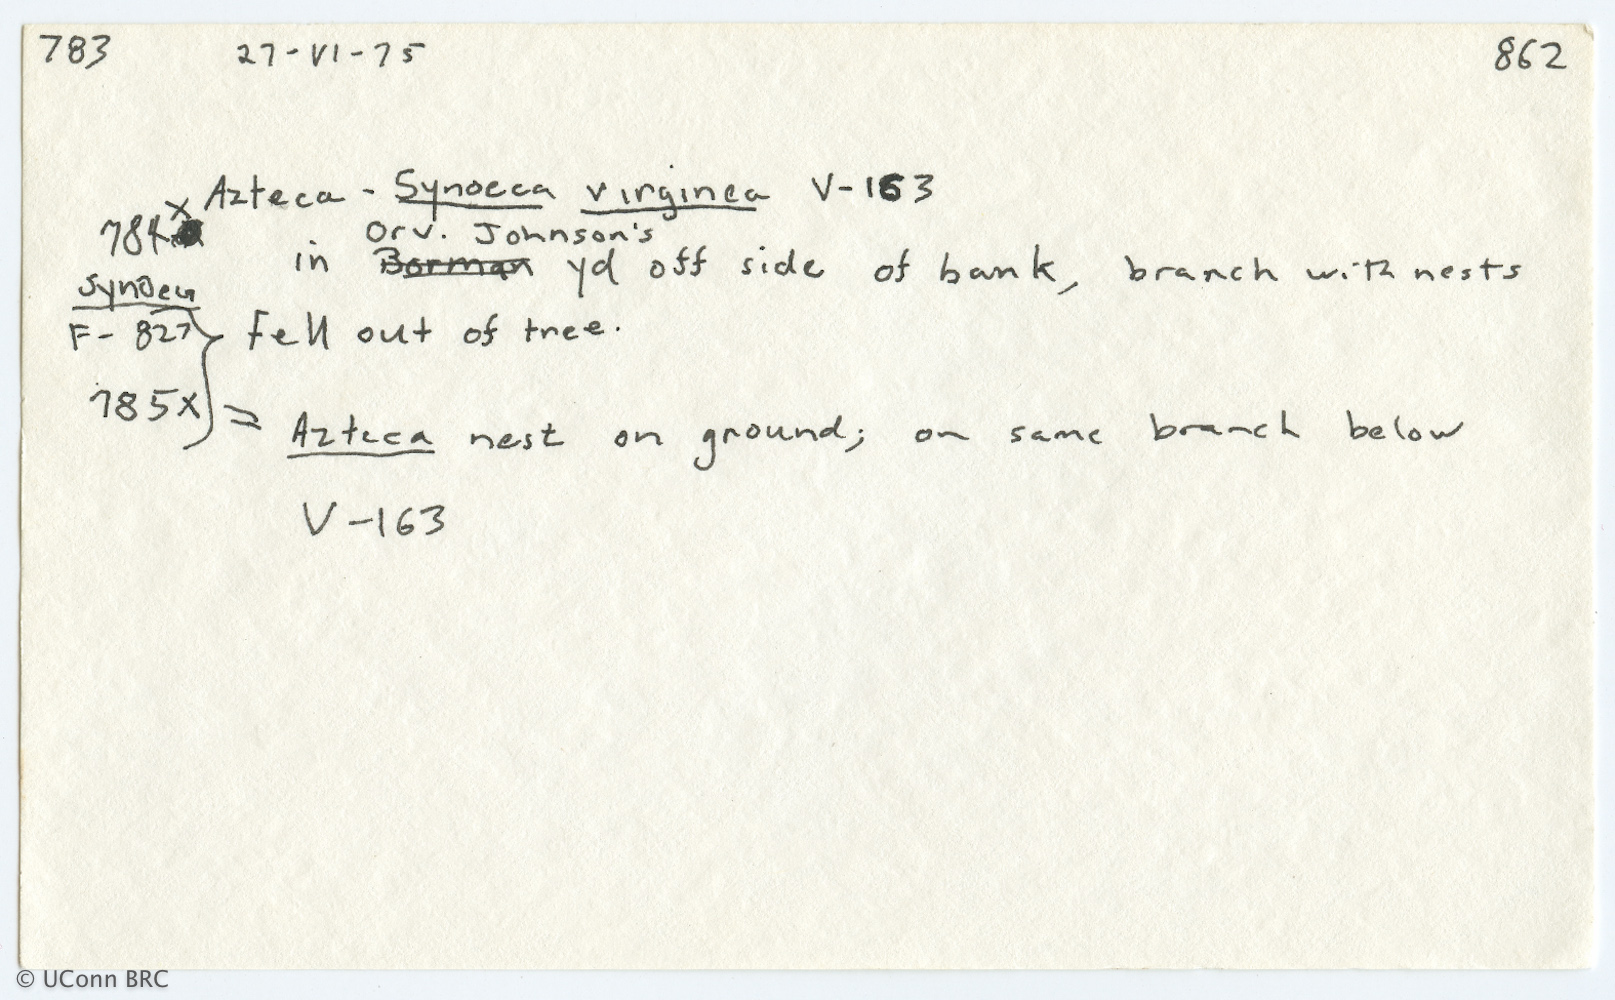 783 27-VI-75 862
Azteca - Synoeca virginea V-163
784x
Orv. Johnson's
in Borman yd off side of bank, branch with nests
Synoeca
F-827 } fell out of tree.
785x = Azteca nest on ground; on same branch below
V-163
© UConn BRC